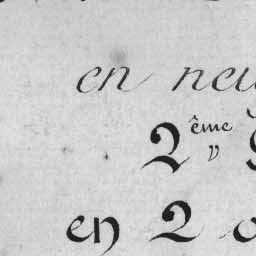 en
2ème
en 2